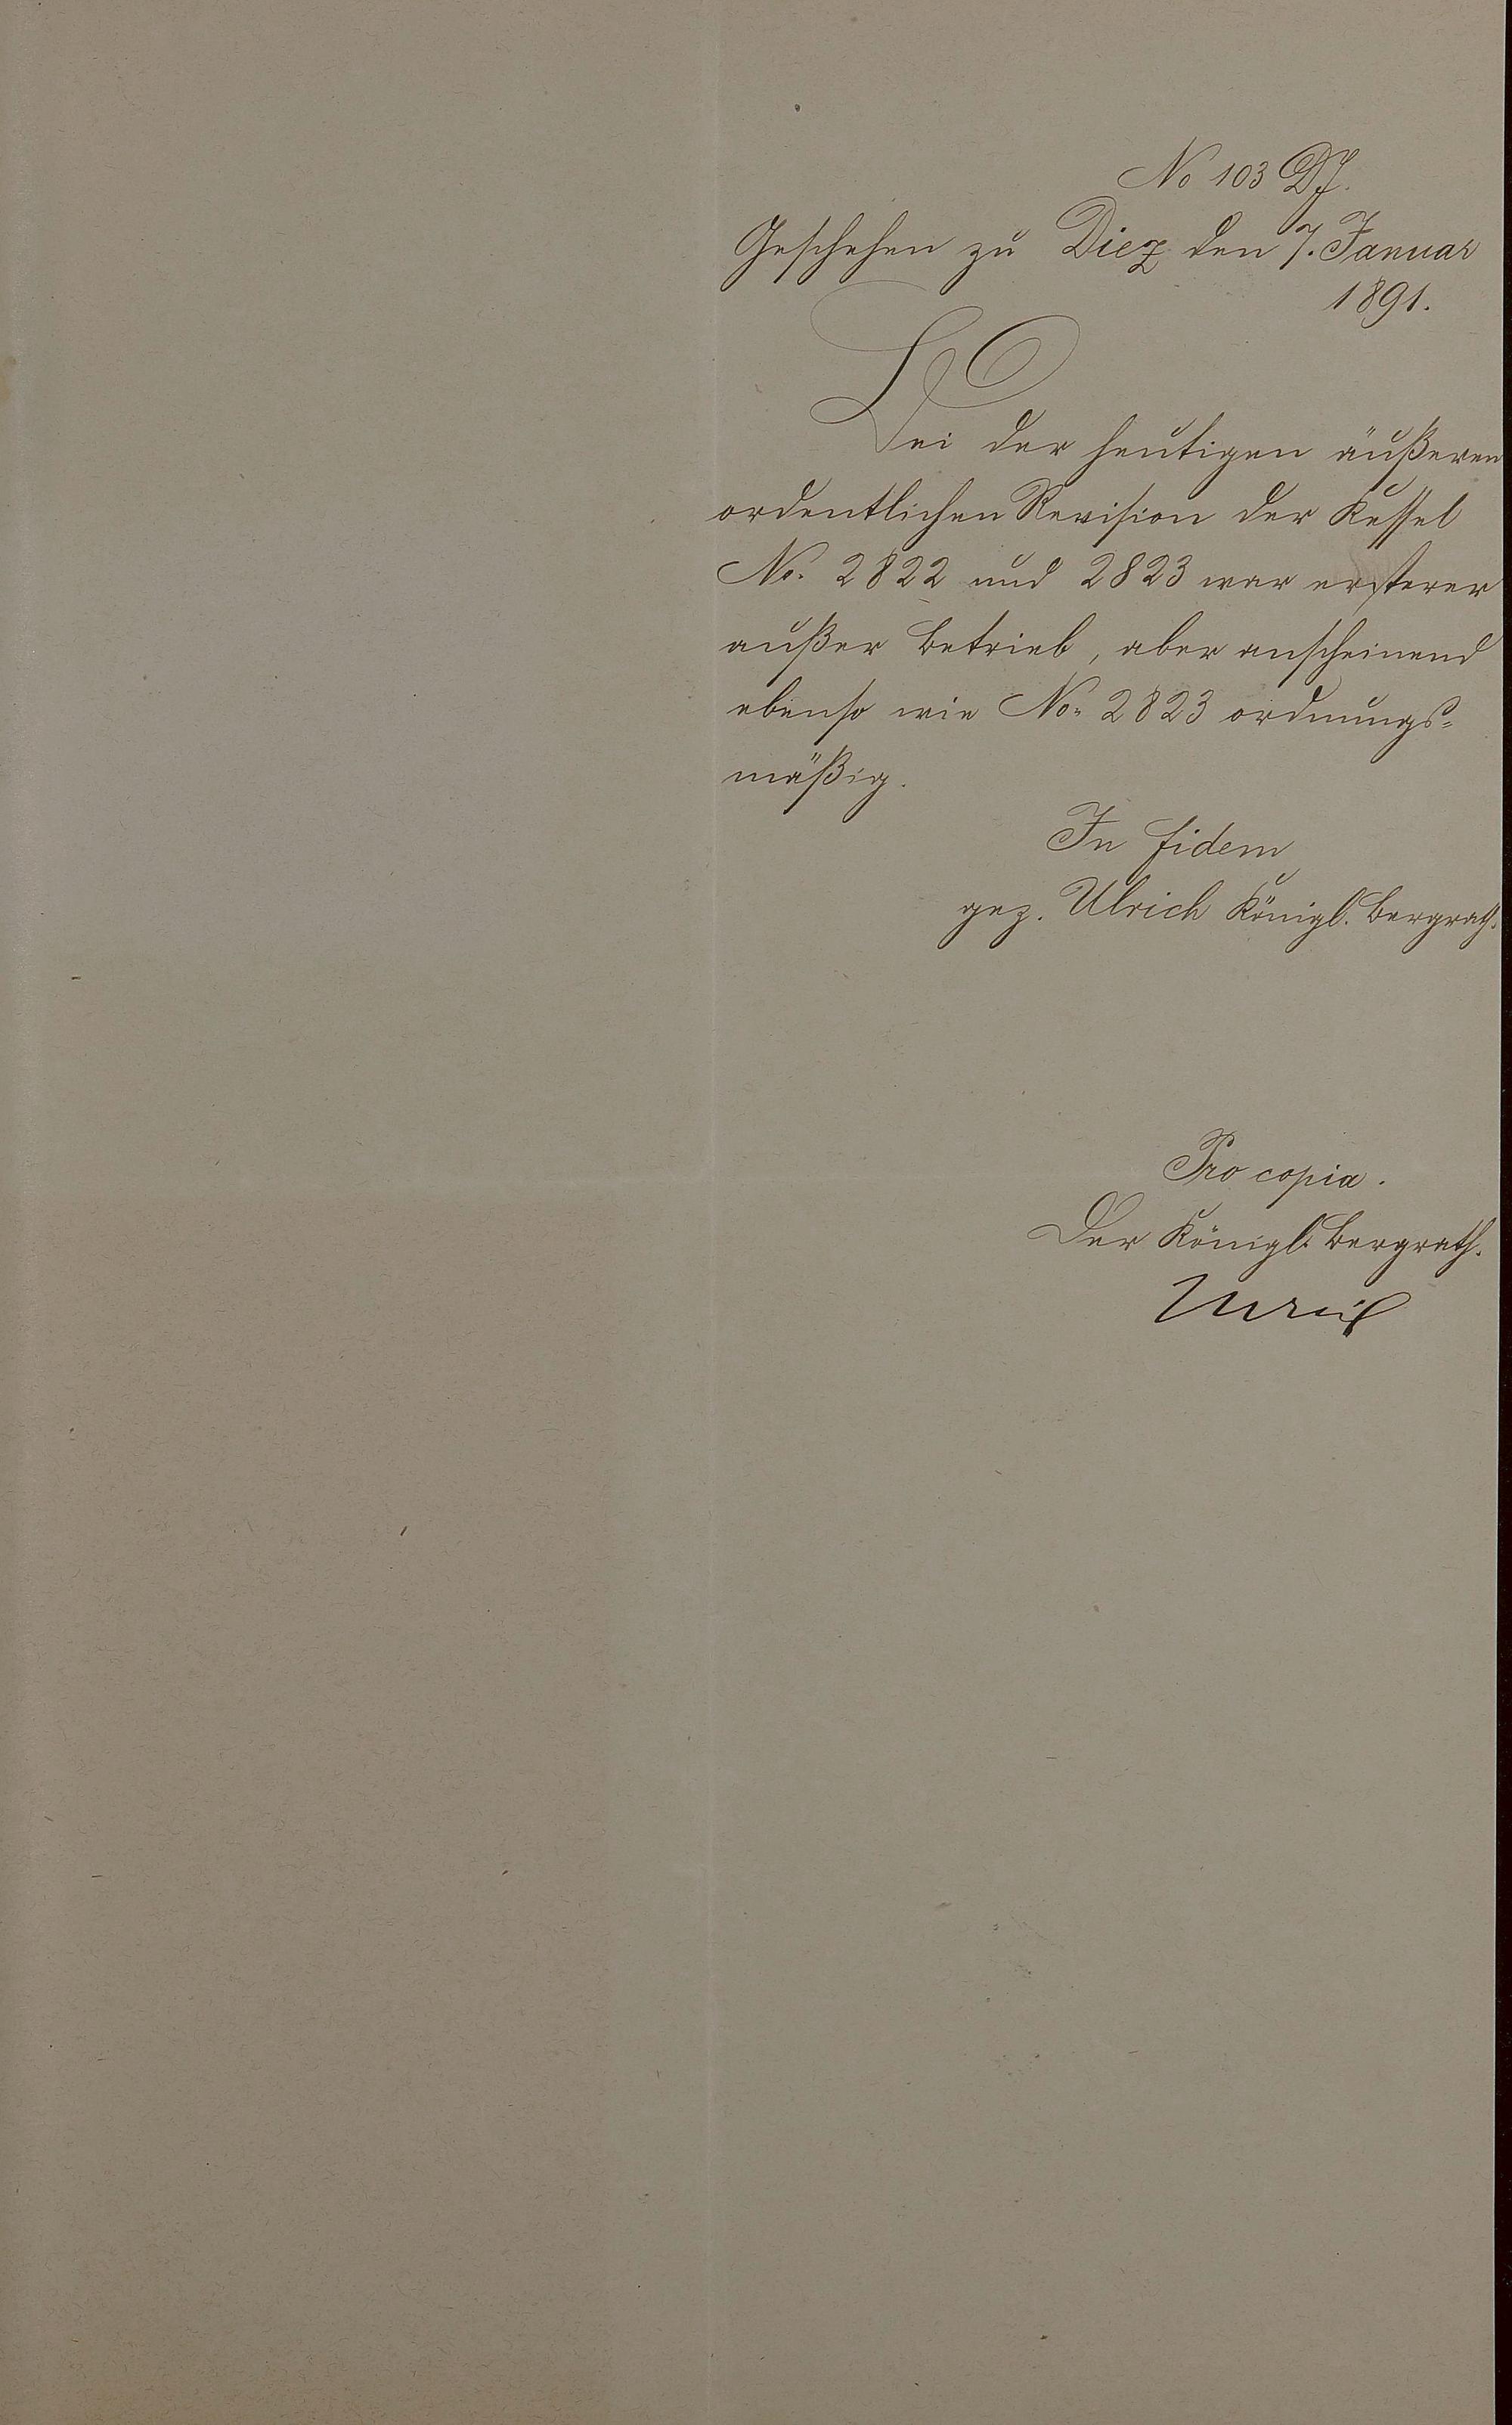 No 103 DJ.
Geschehen zu Diez den 7. Januar
1891.
Bei der heutigen äußeren
ordentlichen Revision der Kessel
No. 2822 und 2823 war ersterer
außer Betrieb, aber anscheinend
ebenso wie No. 2823 ordnungs=
mäßig.
In fidem
gez. Ulrich Königl. Bergrath.
Pro copia.
Der Königl. Bergrath.
Ulrich